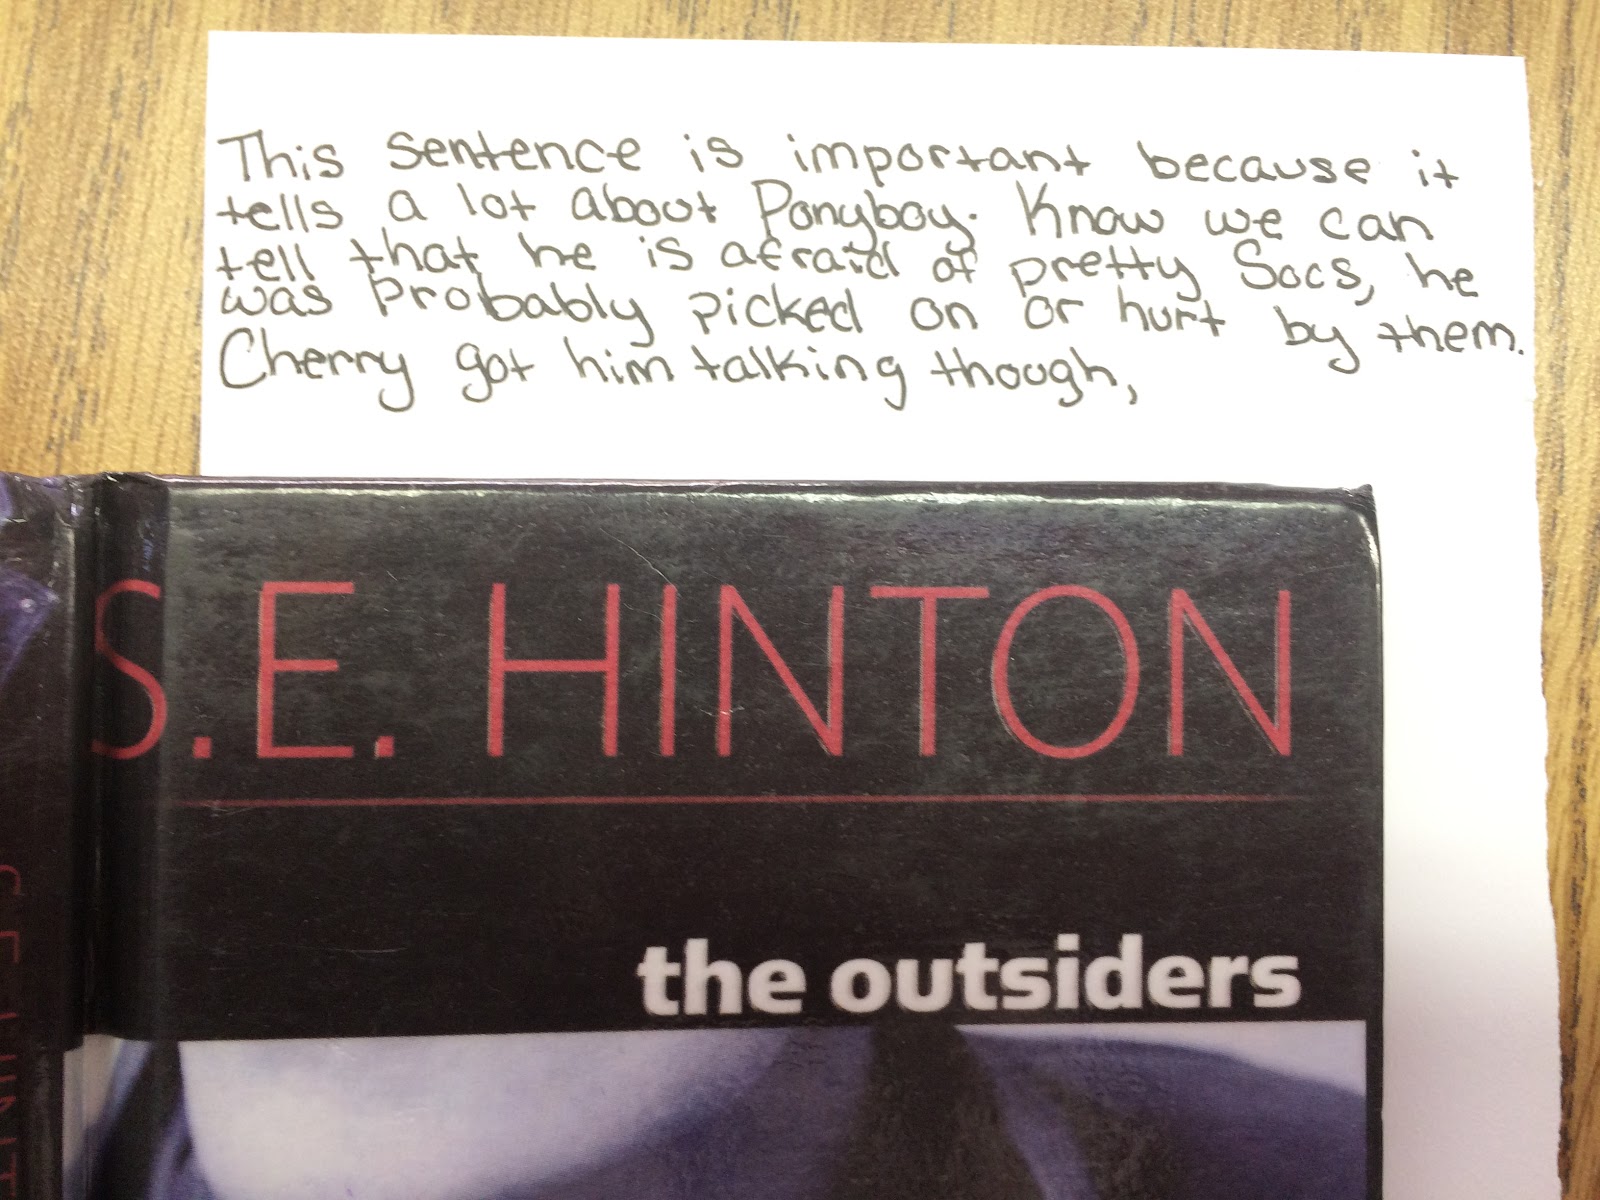 This sentence is important because it
tells a lot about Ponyboy. Know we can
tell that he is afraid of pretty Socs, he
was probably picked on or hurt by them.
Cherry got him talking though,
S.E. HINTON
the outsiders